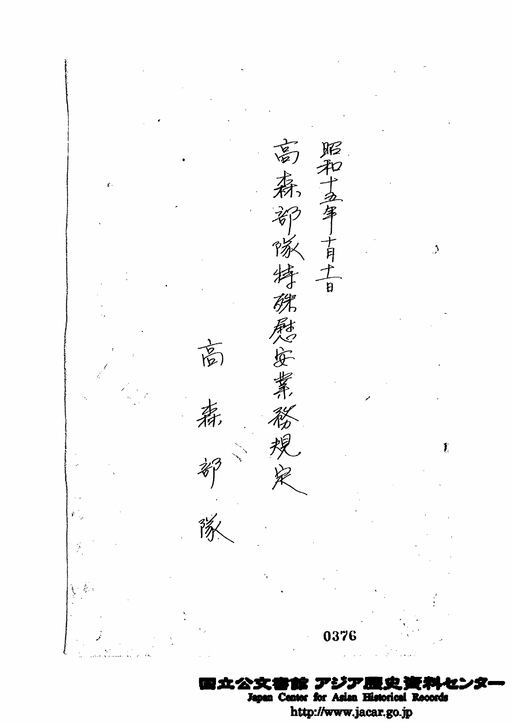 昭和十五年十月十一日
高森部隊特殊慰安業務規定
高森部隊
0376
国立公文書館 アジア歴史資料センター
Japan Center for Asian Historical Records
http://www.jacar.go.jp